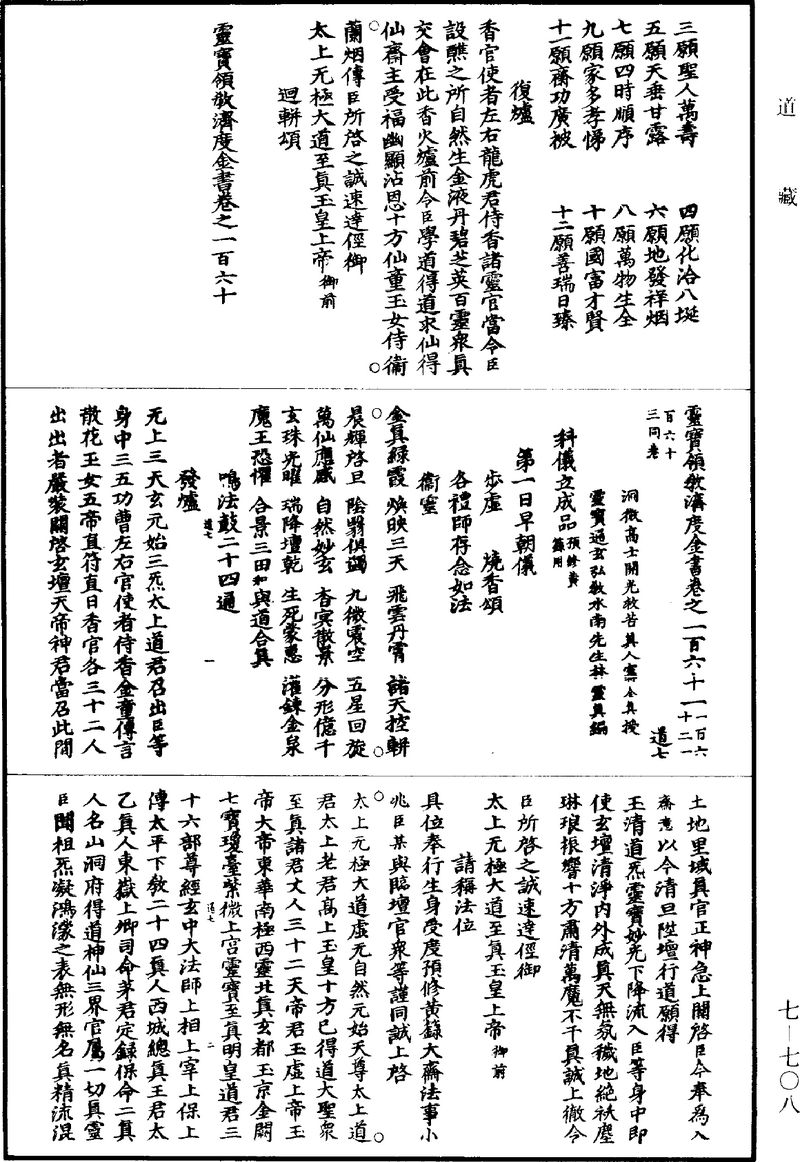 道藏
三願聖人萬壽　四願化洽八埏
五願天垂甘露　六願地發祥烟
七願四時順序　八願萬物生全
九願家多孝悌　十願國富才賢
十一願齋功廣被　十二願善瑞日臻
復爐
香官使者左右龍虎君侍香諸靈官當令臣
設醮之所自然生金液丹碧芝英百靈衆真
交會在此香火爐前令臣學道得道求仙得
仙齋主受福幽顯沾恩十方仙童玉女侍衛
蘭烟傳臣所啓之誠速達徑御
太上无極大道至真玉皇上帝御前
迴軿頌
靈寶領教濟度金書卷之一百六十
靈寶領教濟度金書卷之一百六十一一百六十二
百六十三同卷　道七
洞微高士開光救苦真人寗全真授
靈寶通玄弘教水南先生林靈真編
科儀立成品預修黃籙用
第一日早朝儀
步虛　燒香頌
各禮師存念如法
衞靈
金真綠霞　煥映三天　飛雲丹霄　諸天控軿
晨輝啓旦　陰翳俱蠲　九微震空　五星回旋
萬仙應感　自然妙玄　杳冥散景　分形億千
玄珠光曜　瑞降壇乾　生死蒙惠　灌鍊金泉
魔王恐懼　合景三田和　與道合真
鳴法鼓二十四通
道七　一
發爐
无上三天玄元始三炁太上道君召出臣等
身中三五功曹左右官使者侍香金童傳言
散花玉女五帝直符直日香官各三十二人
出出者嚴裝關啓玄壇天帝神君當召此間
土地里域真官正神急上關啓臣今奉爲入
齋意以今清旦陞壇行道願得
玉清道炁靈寶妙光下降流入臣等身中即
使玄壇清淨内外成真天無氛穢地絶袄塵
琳琅振響十方肅清萬魔不干真誠上徹令
臣所啓之誠速達徑御
太上无極大道至真玉皇上帝御前
請稱法位
具位奉行生身受度預修黃籙大齋法事小
兆臣某與臨壇官衆等謹同誠上啓
太上无極大道虛无自然元始天尊太上道
君太上老君高上玉皇十方已得道大聖衆
至真諸君丈人三十二天帝君玉虛上帝玉
帝大帝東華南極西靈北真玄都玉京金闕
七寶瓊臺紫微上宮靈寶至真明皇道君三
道七　二
十六部尊經玄中大法師上相上宰上保上
傳太平下教二十四真人西城總真王君太
乙真人東嶽上卿司命茅君定録保命二真
人名山洞府得道神仙三界官屬一切真靈
臣聞祖炁凝鴻濛之表無形無名真精流混
七—七〇八